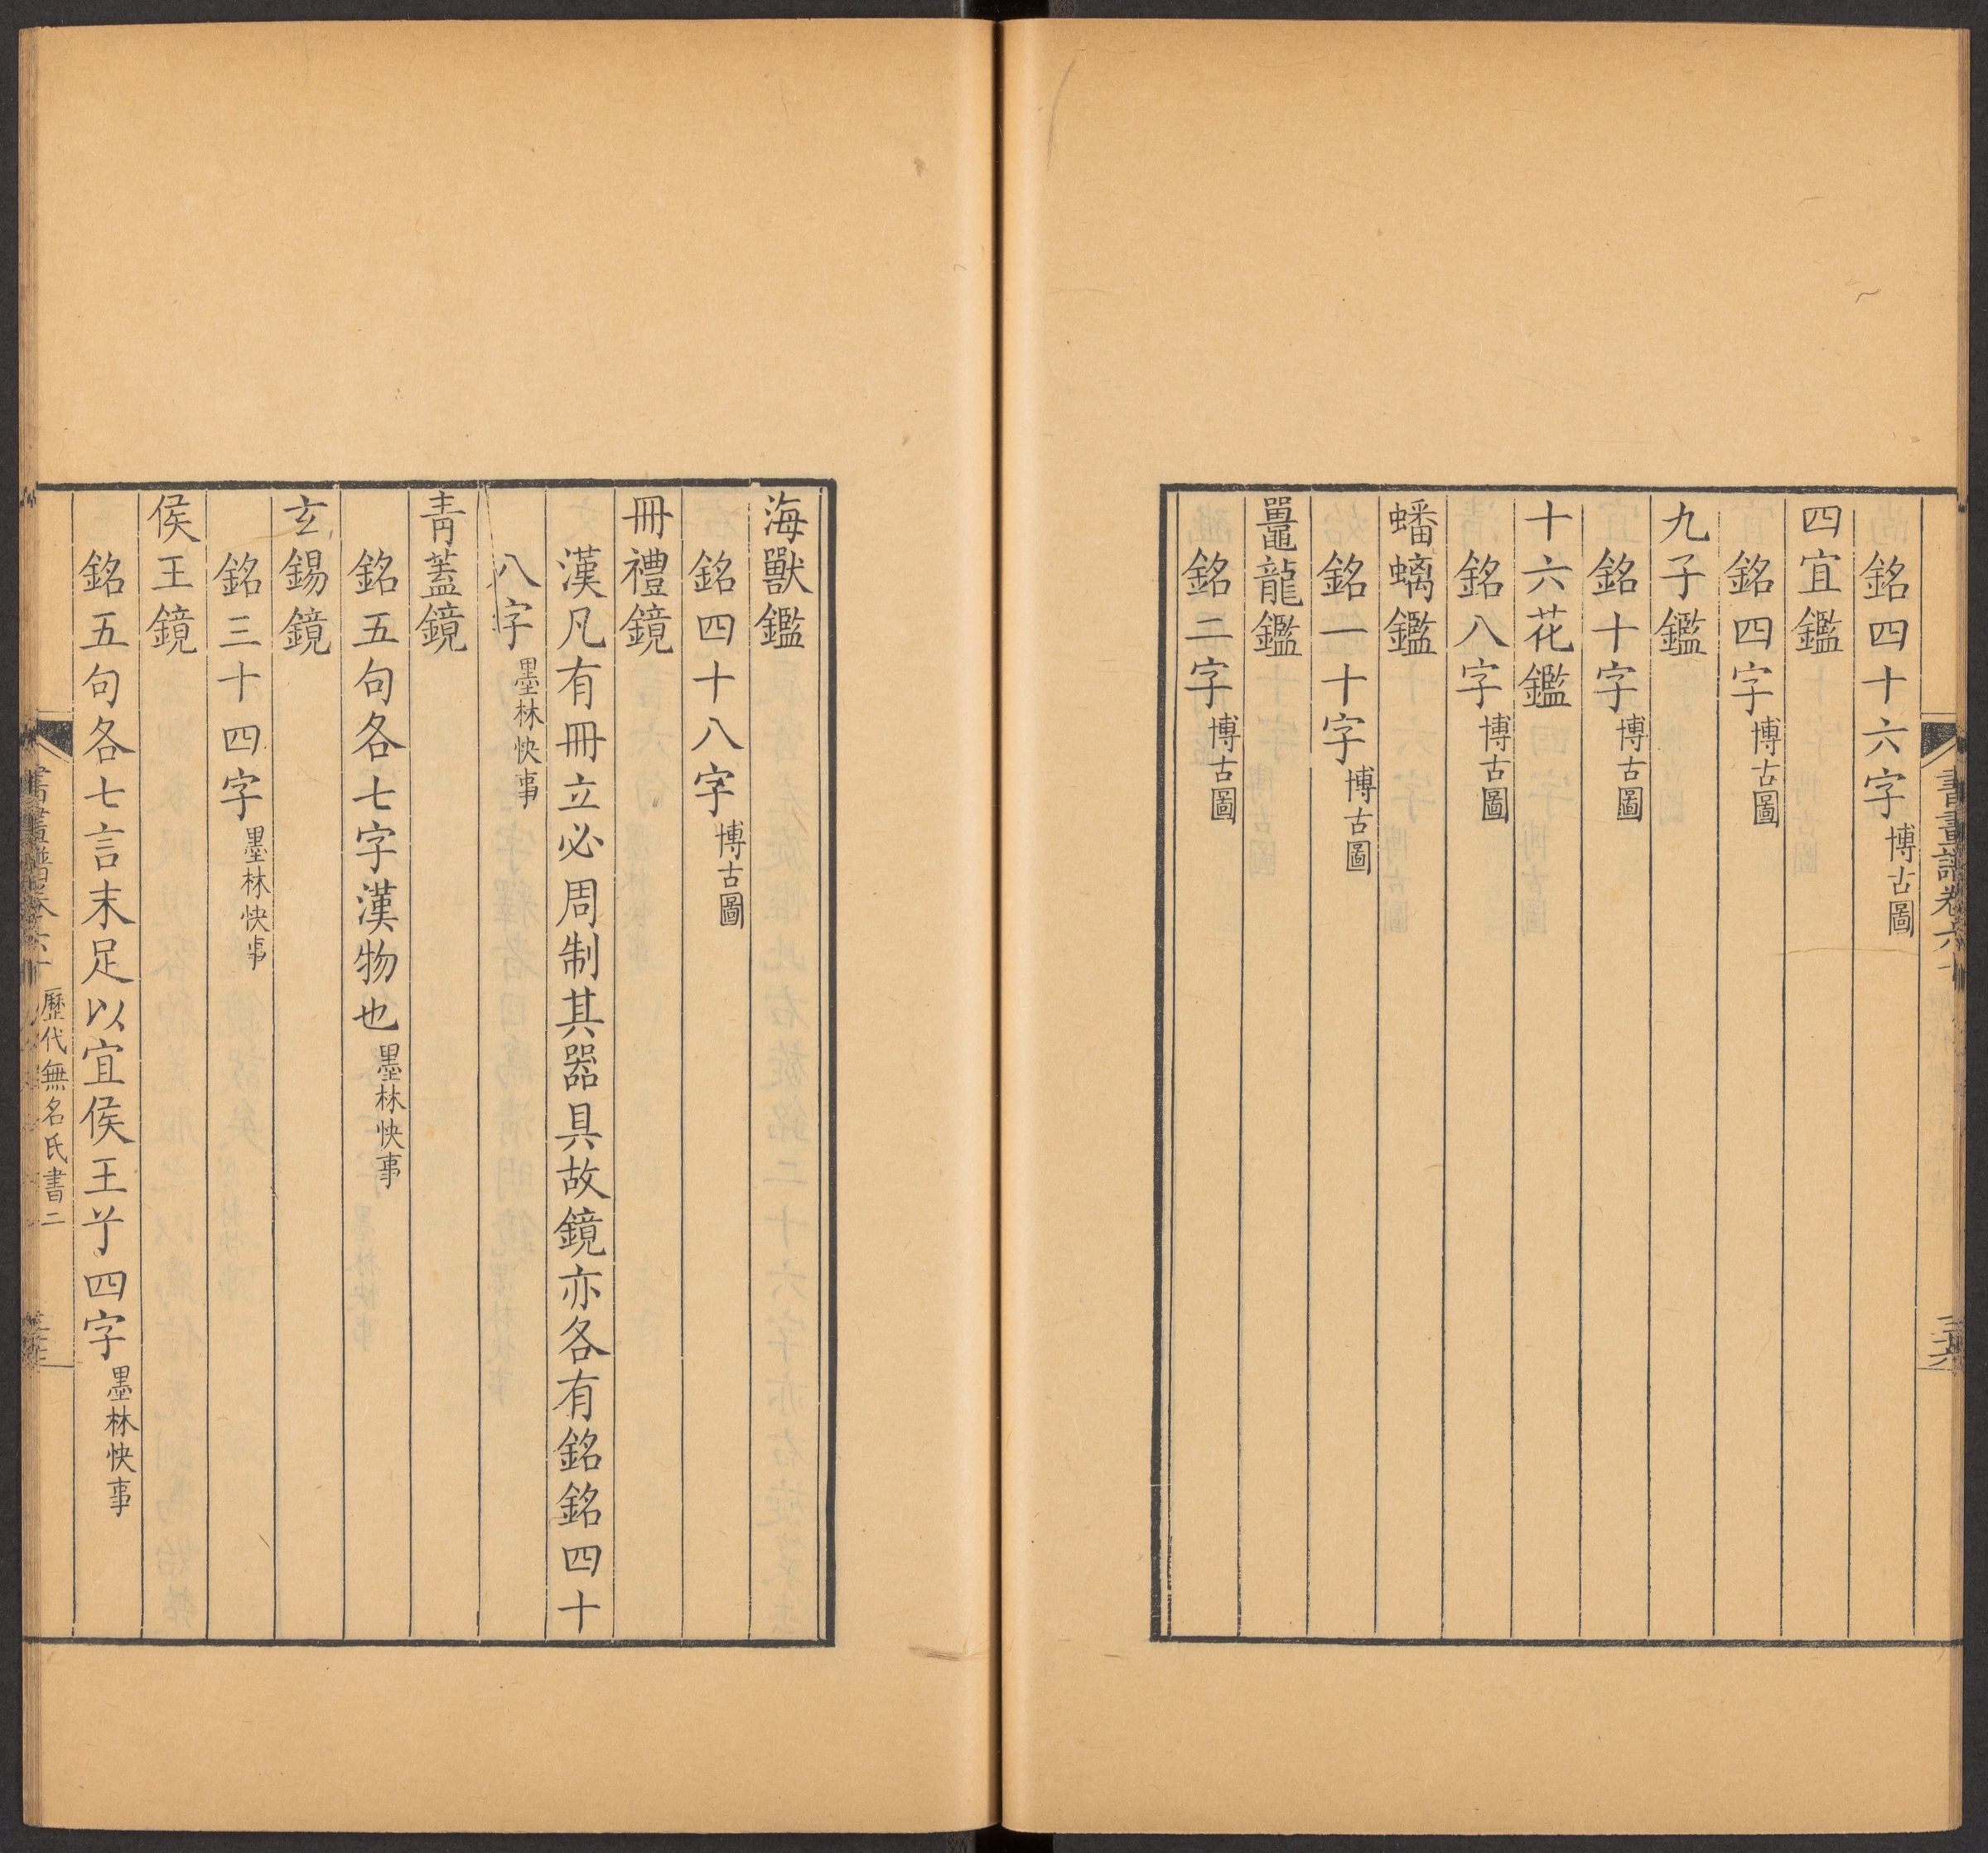 銘四十六字博古圖
四宜鑑
銘四字博古圖
九子鑑
銘十字博古圖
十六花鑑
銘八字博古圖
蟠螭鑑
銘一十字博古圖
鼉龍鑑
銘二字博古圖
書畫譜卷六十
三十六
海獸鑑
銘四十八字博古圖
冊禮鏡
漢凡有冊立必周制其器具故鏡亦各有銘銘四十
八字墨林快事
青蓋鏡
銘五句各七字漢物也墨林快事
玄錫鏡
銘三十四字墨林快事
侯王鏡
銘五句各七言末足以宜侯王兮四字墨林快事
書畫譜卷六十
歷代無名氏書二